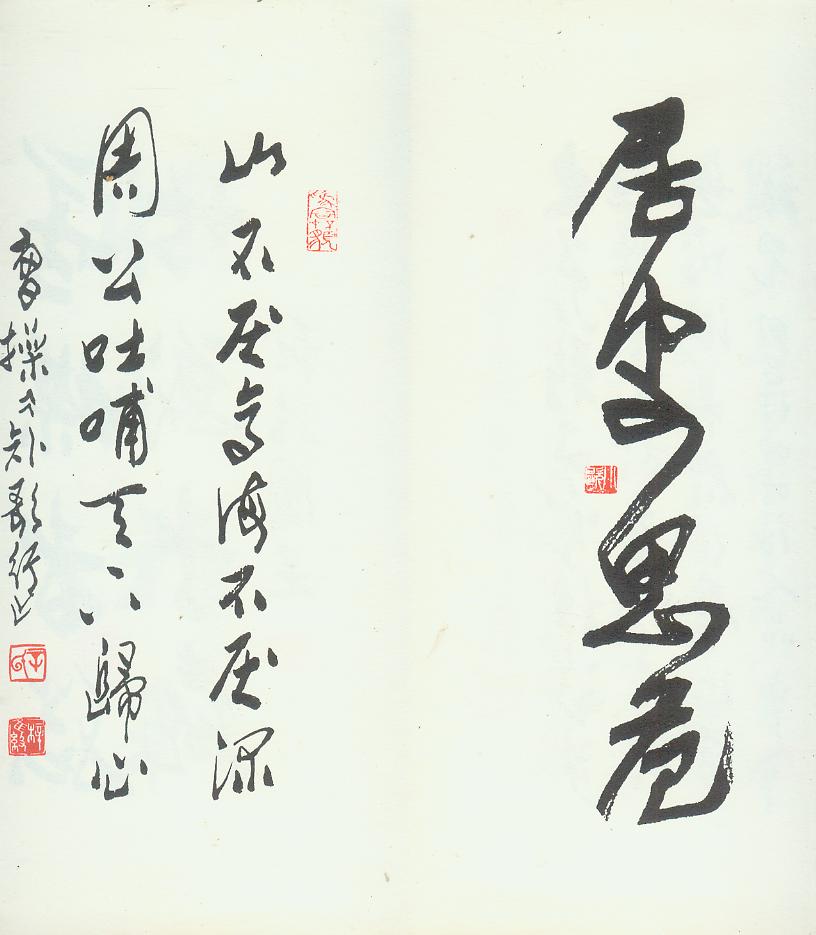 居安思危
山不厌高海不厌深
周公吐哺天下歸心
曹操之短歌行也